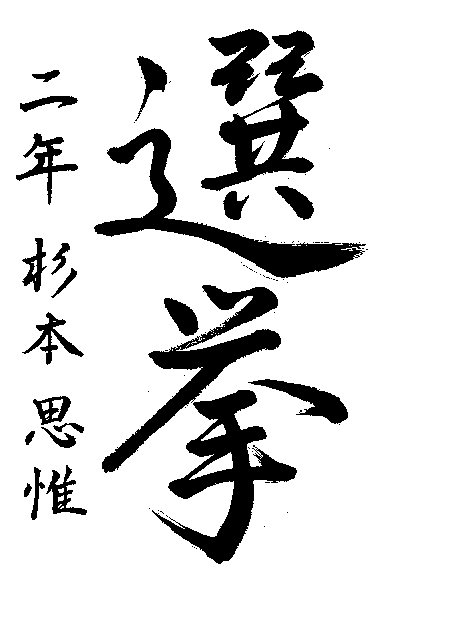 選挙
二年 杉本思惟